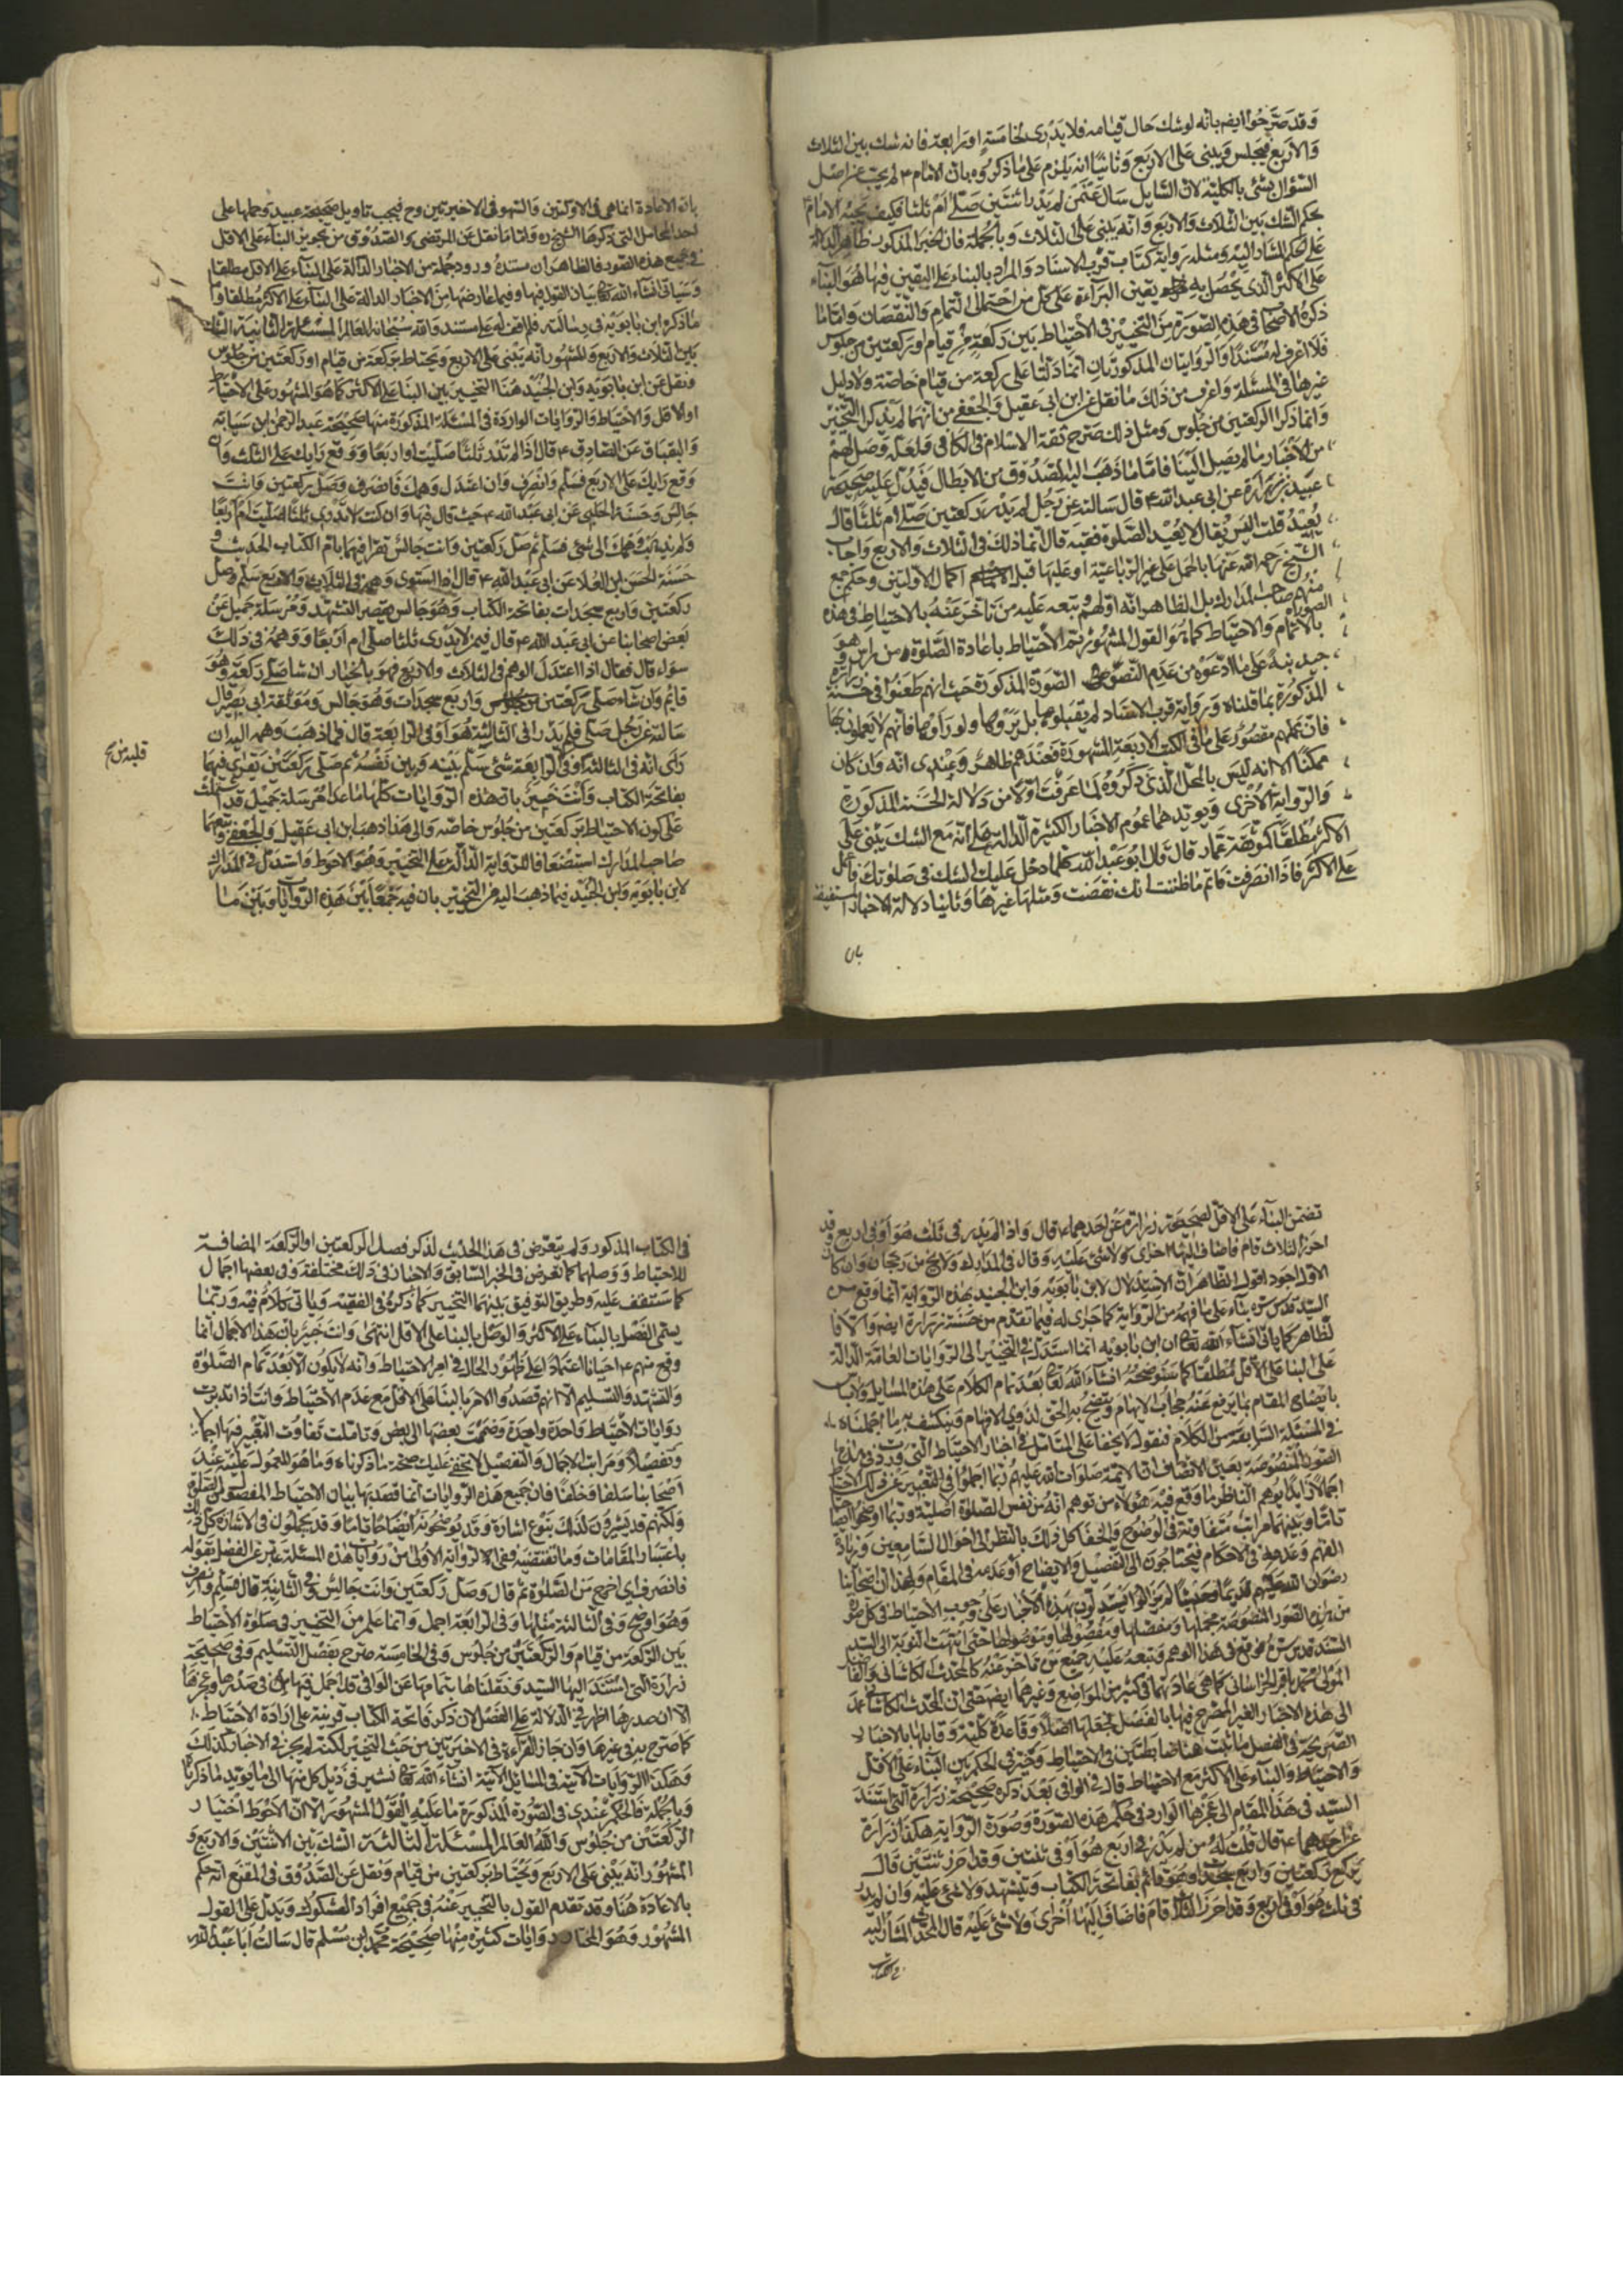 وقد صرحوا ايضا بانه لو شك حال قيامه فلا يدرى لخامسة او رابعة فانه شك بين الثلاث
والاربع فيجلس ويبنى على الاربع وثانيا انه يلزم على ما ذكروه بان الامام ع لم يجب عن اصل
السؤال بشئ بالكلية لان السايل سال عمن لم يدر اثنتين صلى ام ثلثا فكيف يجيبه الامام
بحكم الشك بين الثلاث والاربع وانه يبنى على الثلاث وبالجملة فان الخبر المذكور ظاهر الدلالة
على الحكم المشار اليه ومثله رواية كتاب قرب الاسناد والمراد بالبناء على اليقين فيها هو البناء
على الاكثر الذى يحصل به يقين البراءة على كل من احتمالى التمام والنقصان واما ما
ذكره الاصحاب فى هذه الصورة من التخيير فى الاحتياط بين ركعة من قيام او ركعتين من جلوس
فلا اعرف له مستندا والروايتان المذكورتان انما دلتا على ركعة من قيام خاصة ولا دليل
غيرها فى المسئلة واغرب من ذلك ما نقل عن ابن ابى عقيل والجعفى من انهما لم يذكرا التخيير
وانما ذكرا الركعتين من جلوس ومثل ذلك صرح ثقة الاسلام فى الكافى فلعله وصل لهم
من الاخبار ما لم يصل الينا فاما ما ذهب اليه الصدوق من الابطال فيدل عليه صحيحة
عبيد بن زرارة عن ابى عبد الله ع قال سالته عن رجل لم يدر ركعتين صلى ام ثلثا قال
يعيد قلت اليس يقال لا يعيد الصلوة فقيه قال انما ذلك فى الثلاث والاربع واجاب
الشيخ رحمه الله عنها بالحمل على غير الرباعية او عليها قبل اكمال الاولتين وحكم جمع
منهم صاحب المدارك بل الظاهر انه اولهم وتبعه عليه من تاخر عنه بالاحتياط فى هذه الصورة
بالاتمام والاحتياط كما هو القول المشهور ثم الاحتياط باعادة الصلوة من راس وهو
جيد بناء على ما ادعوه من عدم النصوص فى الصورة المذكورة حيث انهم طعنوا فى حسنة زرارة
المذكورة بما قلناه ورواية قرب الاسناد لم يقبلوها بل لم يروها ولو راوها فانهم لا يعملون بها
فان عملهم مقصور على ما فى الكتب الاربعة المشهورة فعندهم ظاهر وعندى انه وان كان
ممكنا الا انه ليس بالمحل الذى ذكروه لما عرفت اولا من دلالة الحسنة المذكورة
والرواية الاخرى ويويدهما عموم الاخبار الكثيرة الدالة على انه مع الشك يبنى على
الاكثر مطلقا كموثقة عمار قال قال ابو عبد الله كلما دخل عليك الشك فى صلوتك فاعمل
على الاكثر فاذا انصرفت فاتم ما ظننت انك نقصت ومثلها غيرها وثانيا دلالة الاخبار المستفيضة
بان
بان الاعادة انما هى فى الاولتين والسهو فى الاخيرتين وح فيجب تاويل صحيحة عبيد وحملها على
احد المحامل التى ذكرها الشيخ ره واما ما نقل عن المرتضى والصدوق من تجويز البناء على الاقل
فى جميع هذه الصور فالظاهر ان مستنده ورود جملة من الاخبار الدالة على البناء على الاقل مطلقا
وسياتى انشاء الله تعالى بيان القول فيها وفيما عارضها من الاخبار الدالة على البناء على الاكثر مطلقا واما
ما ذكره ابن بابويه فى رسالته فلم اقف له على مستند والله سبحانه العالم المسئلة الثانية الشك
بين الثلاث والاربع والمشهور انه يبنى على الاربع ويحتاط بركعة من قيام او ركعتين من جلوس
ونقل عن ابن بابويه وابن الجنيد هنا التخيير بين البناء على الاكثر كما هو المشهور على الاحتياط
او الاقل والاحتياط والروايات الواردة فى المسئلة المذكورة منها صحيحة عبد الرحمن ابن سيابة
والبقباق عن الصادق ع قال اذا لم تدر ثلثا صليت او اربعا ووقع رايك على الثلث وان
وقع رايك على الاربع فسلم وانصرف وان اعتدل وهمك فانصرف وصل ركعتين وانت
جالس وحسنة الحلبى عن ابى عبد الله ع حيث قال فيها وان كنت لا تدرى ثلثا صليت ام اربعا
ولم يذهب وهمك الى شئ فسلم ثم صل ركعتين وانت جالس تقرا فيهما بام الكتاب الحديث و
حسنة الحسن ابن العلا عن ابى عبد الله ع قال اذا استوى وهمه فى الثلاث والاربع سلم وصلى
ركعتين واربع سجدات بفاتحة الكتاب وهو جالس يقصر التشهد ومرسلة جميل عن
بعض اصحابنا عن ابى عبد الله ع قال فيمن لا يدرى ثلثا صلى ام اربعا ووهمه فى ذلك
سواء قال فقال اذا اعتدل الوهم فى الثلاث والاربع فهو بالخيار ان شا صلى ركعة وهو
قائم وان شاء صلى ركعتين واربع سجدات وهو جالس وموثقة ابى بصير قال
سالته عن رجل صلى فلم يدر افى الثالثة هو او فى الرابعة قال فما ذهب وهمه اليه ان
راى انه فى الثالثة وفى قلبه من الرابعة شئ سلم بينه وبين نفسه ثم صلى ركعتين يقرا فيهما
بفاتحة الكتاب وانت خبير بان هذه الروايات كلها ما عدا مرسلة جميل قد اشتملت
على كون الاحتياط بركعتين من جلوس خاصة والى هذا ذهب ابن ابى عقيل والجعفى وتبعهما
صاحب المدارك استضعافا للرواية الدالة على التخيير وهو الاحوط واستدل فى المدارك
لابن بابويه وابن الجنيد فيما ذهبا اليه من التخيير بان فيه جمعا بين هذه الروايات وبين ما
قلبه من صح
تضمن البناء على الاقل لصحيحة زرارة عن احدهما ع قال واذا لم يدر فى ثلث هو او فى اربع وقد
احرز الثلاث قام فاضاف اليها اخرى ولا شئ عليه وقال فى المدارك ولا يخ من رجحان وان كان
الاول اجود اقول الظاهر ان الاستدلال لابن بابويه وابن الجنيد بهذه الرواية انما وقع من
السيد قدس سره بناء على ما فهمه من الرواية كما جرى له فيما تقدم من حسنة زرارة ايضا والا فا
لظاهر كما ياتى انشاء الله تعالى ان ابن بابويه انما استدل فى التخيير الى الروايات العامة الدالة
على البنا على الاقل مطلقا كما سنوضحه انشاء الله تعالى بعد تمام الكلام على هذه المسايل ولا باس
بايضاح المقام بما يرفع عنه حجاب الابهام ويتضح به الحق لذوى الافهام وينكشف به ما اجملناه
فى المسئلة السابقة من الكلام فنقول لا يخفا على المتامل فى اخبار الاحتياط التى وردت فى هذه
الصور المنصوصة بعين الانصاف ان الائمة صلوات الله عليهم ربما اجملوا فى التعبير عن ذلك الاحتياط
اجمالا زايدا يوهم الناظر ما وقع فيه هؤلاء من توهم انه من نفس الصلوة اصلية وربما اوضحوا ايضاحا
تاما وبينهما مراتب متفاوتة فى الوضوح والخفا كل ذلك بالنظر الى احوال السامعين وزيادة
الفهم وعدمه فى الاحكام فيحتاجون الى التفصيل والايضاح او عدمه فى المقام ولهذا ان اصحابنا
رضوان الله عليهم قديما وحديثا لم يزالوا يستدلون بهذه الاخبار على وجوب الاحتياط فى كل صورة
من هذه الصور المنصوصة مجملها ومفصلها ومفصولها وموصولها حتى انتهت النوبة الى السيد
السند قدس سره فوقع فى هذا الوهم وتبعه عليه جمع من تاخر عنه كالمحدث الكاشانى والفاضل
المولى محمد باقر الخراسانى كما هى عادتهما فى كثير من المواضع وغيرهما ايضا حتى ان المحدث الكاشانى عمد
الى هذه الاخبار الغير المصرح فيها بالفصل فجعلها اصلا وقاعدة كلية وقابلها بالاخبار
الصريحة فى الفصل فاثبت هنا ضابطتين فى الاحتياط وخير فى الحكم بين البناء على الاقل
والاحتياط والبناء على الاكثر مع الاحتياط قال فى الوافى بعد ذكره صحيحة زرارة التى استند
السيد فى هذا المقام الى عجزها الوارد فى حكم هذه الصورة وصورة الرواية هكذا زرارة
عن احدهما ع قال قلت له من لم يدر فى اربع هو او فى ثنتين وقد احرز ثنتين قال
يركع ركعتين واربع سجدات وهو قائم بفاتحة الكتاب ويتشهد ولا شئ عليه وان لم يدر
فى ثلث هو او فى اربع وقد احرز الثلاث قام فاضاف اليها اخرى ولا شئ عليه قال المحدث المشار اليه
فى الكتاب
فى الكتاب المذكور ولم يتعرض فى هذا الحديث لذكر فصل الركعتين او الركعة المضافة
للاحتياط ووصلها كما تعرض فى الخبر السابق والاخبار فى ذلك مختلفة وفى بعضها اجمال
كما ستقف عليه وطريق التوفيق بينهما التخيير كما ذكره فى الفقيه وياتى كلامه فيه وربما
يسمى الفصل بالبناء على الاكثر والوصل بالبناء على الاقل انتهى وانت خبير بان هذا الاجمال انما
وقع منهم ع احيانا اعتمادا على ظهور الحال فى امر الاحتياط وانه لا يكون الا بعد تمام الصلوة
والتشهد والتسليم الا انهم قصدوا الامر بالبناء على الاقل مع عدم الاحتياط وانت اذا تدبرت
روايات الاحتياط واحدة واحدة وضممت بعضها الى بعض وتاملت تفاوت التعبير فيها اجمالا
وتفصيلا ومراتب الاجمال والتفصيل لا يخفى عليك صحة ما ذكرناه وما هو المعمول عليه عند
اصحابنا سلفا وخلفا فان جميع هذه الروايات انما قصد بها بيان الاحتياط المفصول عن الصلوة
ولكنهم قد يشيرون لذلك بنوع اشارة وقد يوضحونه ايضاحا تاما وقد يجملون فى الاشارة كل ذلك
باعتبار المقامات وما تقتضيه وفى الرواية الاولى من روايات هذه المسئلة عبر عن الفصل بقوله
فانصرف اى اخرج من الصلوة ثم قال وصل ركعتين وانت جالس وفى الثانية قال فسلم وانصرف
وهو اوضح وفى الثالثة مثلها وفى الرابعة اجمل وانما علم من التخيير فى صلوة الاحتياط
بين الركعة من قيام والركعتين من جلوس وفى الخامسة صرح بفصل التسليم وفى صحيحة
زرارة التى استند اليها السيد ونقلناها بتمامها عن الوافى قد اجمل فيها فى صدرها وعجزها
الا ان صدرها اظهر فى الدلالة على الفصل لان ذكر فاتحة الكتاب قرينة على ارادة الاحتياط
كما صرح به فى غيرها وان جاز القراءة فى الاخيرتين من حيث التخيير لكنه لم يجز فى الاخبار كذلك
وهكذا الروايات الاتية فى المسايل الاتية انشاء الله تعالى نشير فى ذيل كل منها الى ما يويد لما ذكرنا
وبالجملة فالحكم عندى فى الصورة المذكورة ما عليه القول المشهور الا ان الاحوط اختيار
الركعتين من جلوس والله العالم المسئلة الثالثة الشك بين الاثنتين والاربع و
المشهور انه يبنى على الاربع ويحتاط بركعتين من قيام ونقل عن الصدوق فى المقنع انه حكم
بالاعادة هنا وقد تقدم القول بالتخيير عنه فى جميع افراد الشكوك ويدل على القول
المشهور وهو المختار روايات كثيرة منها صحيحة محمد ابن مسلم قال سالت ابا عبد الله